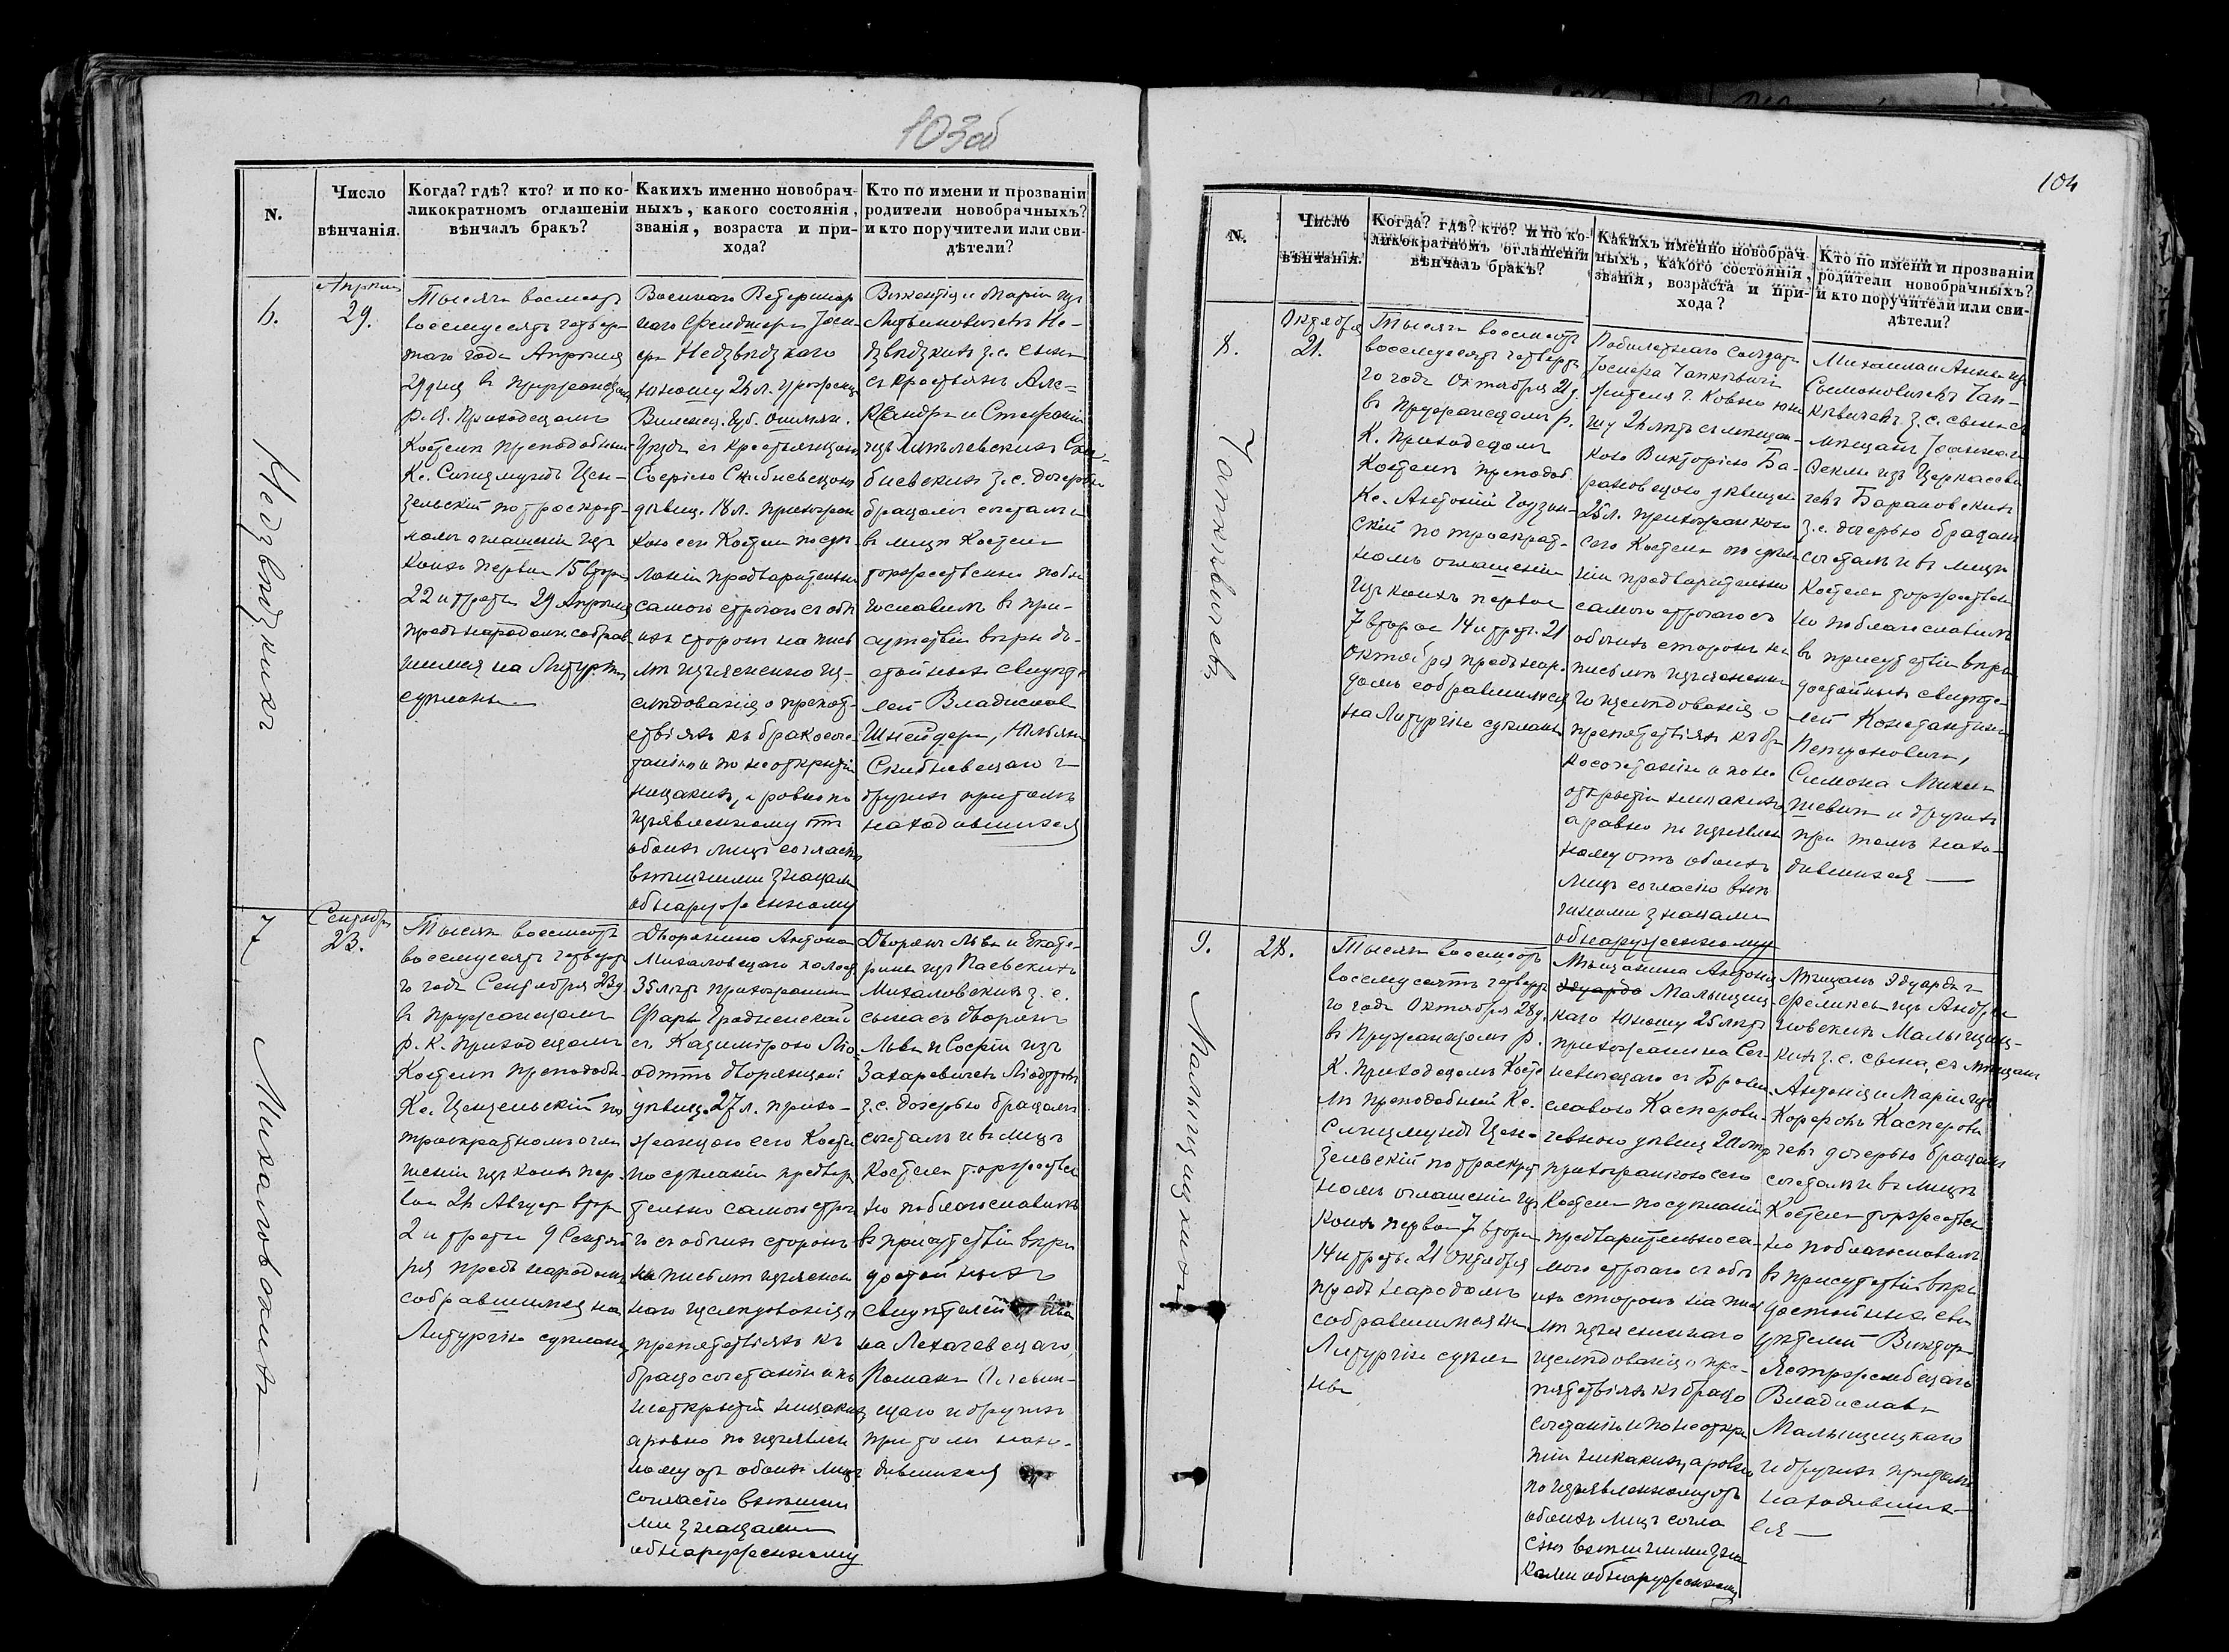 103об
N.
Число
вѣнчанія.
Когда? гдѣ? кто? и по ко-
ликократномъ оглашеніи
вѣнчалъ бракъ?
Какихъ именно новобрач-
ныхъ, какого состоянія,
званія, возраста и при-
хода?
Кто по имени и прозванію
родители новобрачныхъ?
и кто поручители или сви-
дѣтели?
6.
Недзвѣдзкихъ
Апрѣля
29.
Тысяча восемьсотъ
восемьдесятъ четвер-
таго года Апрѣля
29 дня въ Пружанском
Р. К. Приходскомъ
Костелѣ Преподобный
Кс. Сигизмундъ Цен-
зельскій по троекрат-
номъ оглашеніи изъ
коихъ первое 15 второе
22 и третье 29 Апрѣля
предъ народомъ собрав
шимся на Литургію
сдѣланы
Военнаго Ветеринар
наго Фельдшера Іоси-
фа Недзвѣдзкаго
юношу 24 л. урожен
Виленск. Губ. Ошмян.
Уѣзда съ крестьянкою
Софіею Скибневскою
дѣвиц. 18 л. прихожан
кою сего Костела по сдѣ-
ланіи предварительно
самого строгаго съ обѣ
ихъ сторонъ на пись
мѣ изъясненно из-
слѣдованія о препят-
ствіяхъ къ бракосоче-
танію и по неоткрытіи
никакихъ, а равно по
изъявленному от
обоихъ лицъ согласію
внѣшними знаками
обнаруженному
Викентія и Маріи изъ
Литвиновичевъ Не-
дзвѣдзкихъ з. с. сына
съ крестьянъ Алек-
сандра и Стефаніи
изъ Скиб-
невскихъ з. с. дочерью
бракомъ сочеталъ и
въ лицѣ Костела
торжественно побла
гословилъ въ при-
сутствіи вѣры до-
стойныхъ свидѣте
лей Владислава
Шнейдера, Юльяна
Скибневскаго и
другихъ при томъ
находившихся
7
Михаловскихъ
Сентября
23.
Тысяча восемьсотъ
восемьдесятъ четверт
го года Сентября 23 д.
въ Пружанскомъ
Р. К. Приходскомъ
Костелѣ Преподобн.
Кс. Цензельскій по
троекратномъ огла
шеніи изъ коихъ пер-
вое 24 Августа второе
2 и третье 9 Сентяб
ря предъ народомъ
собравшимся на
Литургію сдѣланы
Дворянина Антона
Михаловскаго холост
35 лѣтъ прихожанина
Фары Гродненской
съ Казимірою
дворянкой
дѣвиц. 27 л. прихо-
жанкою сего Костела
по сдѣланіи предвар
тельно самого строг
го съ обѣихъ сторонъ
на письмѣ изъяснен
наго изслѣдованія о
препятствіяхъ къ
бракосочетанію и по
неоткрытіи никаких
а равно по изъявлен
ному от обоихъ лицъ
согласію внѣшни
ми знаками
обнаруженному
Дворянъ Льва и Екате-
рины изъ Паевскихъ
Михаловскихъ з. с.
сына съ дворянъ
Льва и Софіи изъ
Захаревичевъ
з. с. дочерью бракомъ
сочеталъ и въ лицѣ
Костела торжествен
но поблагословилъ
въ присутствіи вѣры
достойныхъ
свидѣтелей Ива
на Лехачевскаго,
Романа
и другихъ
при томъ нахо-
дившихся
104
N.
Число
вѣнчанія.
Когда? гдѣ? кто? и по ко-
ликократномъ оглашеніи
вѣнчалъ бракъ?
Какихъ именно новобрач-
ныхъ, какого состоянія,
званія, возраста и при-
хода?
Кто по имени и прозваніи
родители новобрачныхъ?
и кто поручители или сви-
дѣтели?
8.
Чапкѣвичевъ
Октября
21.
Тысяча восемьсотъ
восемьдесятъ четверта
го года Октября 21 д.
въ Пружанскомъ Р.
К. Приходскомъ
Костелѣ преподоб.
Кс. Антоній Годзин-
скій по троекрат-
номъ оглашеніи
изъ коихъ первое
7 второе 14 и трет. 21
Октября предъ наро-
домъ собравшимся
на Литургію сдѣланы
Побилетнаго солдата
Іосифа Чапкѣвича
жителя г. Ковно юно
шу 24 лѣтъ съ мѣщан-
кою Викторіею Ба-
рановскою дѣвицею
25 л. прихожанкою
сего Костела по сдѣла
ніи предварительно
самого строгаго съ
обѣихъ сторонъ на
письмѣ изъясненна
го изслѣдованія о
препятствіяхъ къ бра
косочетанію и по не
открытіи никакихъ
а равно по изъявлен
ному отъ обоихъ
лицъ согласію внѣ
шними знаками
обнаруженному
Михаила и Анны изъ
Симоновичевъ Чап-
кѣвичевъ з. с. сына съ
мѣщанъ Іоанна и
Феклы изъ Церкасеви
чевъ Барановскихъ
з. с. дочерью бракомъ
сочеталъ и въ лицѣ
Костела торжествен
но поблагословилъ
въ присутствіи вѣры
достойныхъ свидѣте-
лей Константина
Петроновича,
Симона
и другихъ
при томъ нахо-
дившихся
9.
Малыщицкихъ
28.
Тысяча восемьсотъ
восемьдесятъ четверта
го года Октября 28 д.
въ Пружанскомъ Р.
К. Приходскомъ Косте
лѣ преподобный Кс.
Сигизмундъ Цен-
зельскій по троекрат
номъ оглашеніи изъ
коихъ первое 7 второе
14 и третье 21 Октября
предъ народомъ
собравшимся на
Литургію сдѣла
ны
Мѣщанина Антона
Эдуарда Малыщиц-
каго юношу 25 лѣтъ
прихожанина Сег-
невичскаго съ Брони
славою Касперови-
чевною дѣвиц 20 лѣт
прихожанкою сего
Костела по сдѣланіи
предварительно са-
мого строгаго съ обѣ
ихъ сторонъ на пись
мѣ изъясненнаго
изслѣдованія о пре-
пятствіяхъ къ брако
сочетанію и по неоткры
тіи никакихъ, а равно
по изъявленному от
обоихъ лицъ согла
сію внѣшними зна
ками обнаруженному
Мѣщанъ Эдуарда и
Феликсы изъ Андри
човскихъ Малыщиц-
кихъ з. с. сына, съ мѣщанъ
Антонія и Маріи изъ
Касперови
чевъ дочерью бракомъ
сочеталъ и въ лицѣ
Костела торжествен
но поблагословилъ
въ присутствіи вѣры
достойныхъ сви
дѣтелей Виктора
Ястржембскаго
Владислава
Малыщицкаго
и другихъ при томъ
находивших-
ся